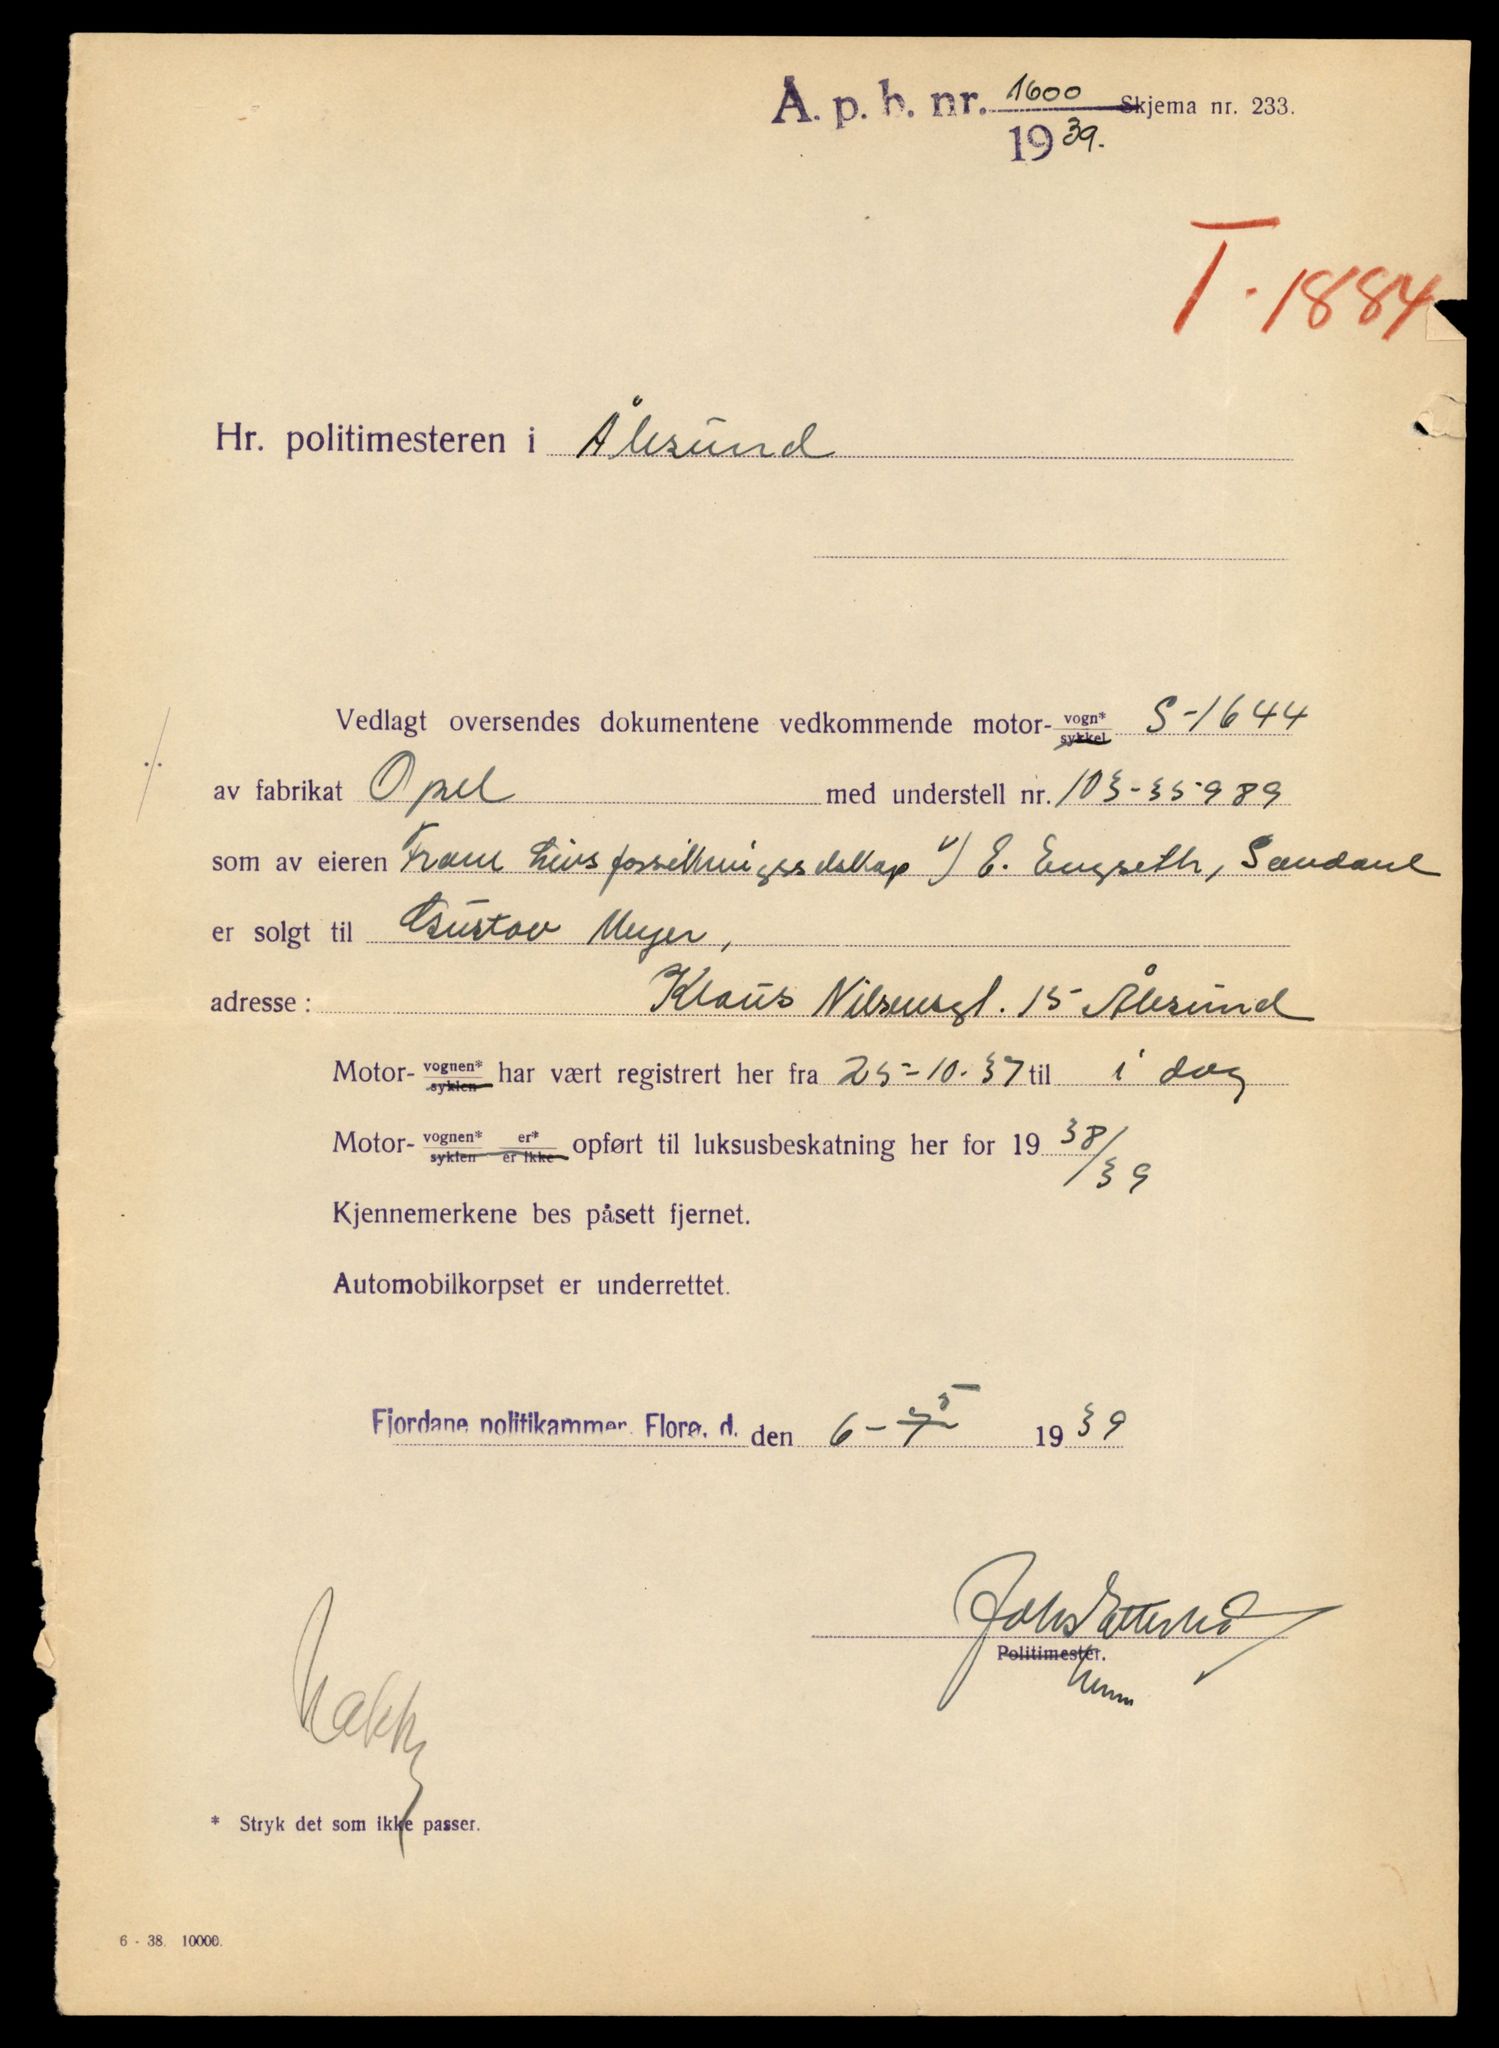 Å. p. b. nr. 1600 Skjema nr. 233.
1939.
T-1884
Hr. politimesteren i Ålesund
Vedlagt oversendes dokumentene vedkommende motor- vogn* sykkel S-1644
av fabrikat Opel med understell nr. 103-35989
som av eieren Fram Livsforsikringsselskap v/ E. Engseth, Sandane
er solgt til Gustav Meyer,
adresse: Klaus Nilsensgt. 15 Ålesund
Motor- vognen* syklen har vært registrert her fra 25-10-37 til i dag
Motor- vognen* syklen er* er ikke opført til luksusbeskatning her for 1938/39
Kjennemerkene bes påsett fjernet.
Automobilkorpset er underrettet.
Fjordane politikammer, Florø, d. den 6-5 1939
Politimester.
* Stryk det som ikke passer.
6 - 38. 10000.